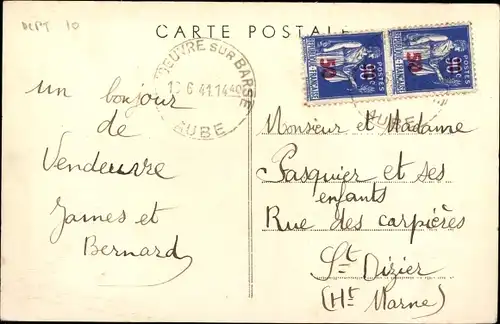 DEPT 10
CARTE POSTALE
OEUVRE SUR BARSE
6 41.14
AUBE
50
90
POSTES
50
90
POSTES
AUBE
un bonjour
de
Vendeuvre
James et
Bernard
Monsieur et Madame
Pasquier et ses
enfants
Rue des carpières
St Dizier
(Ht Marne)